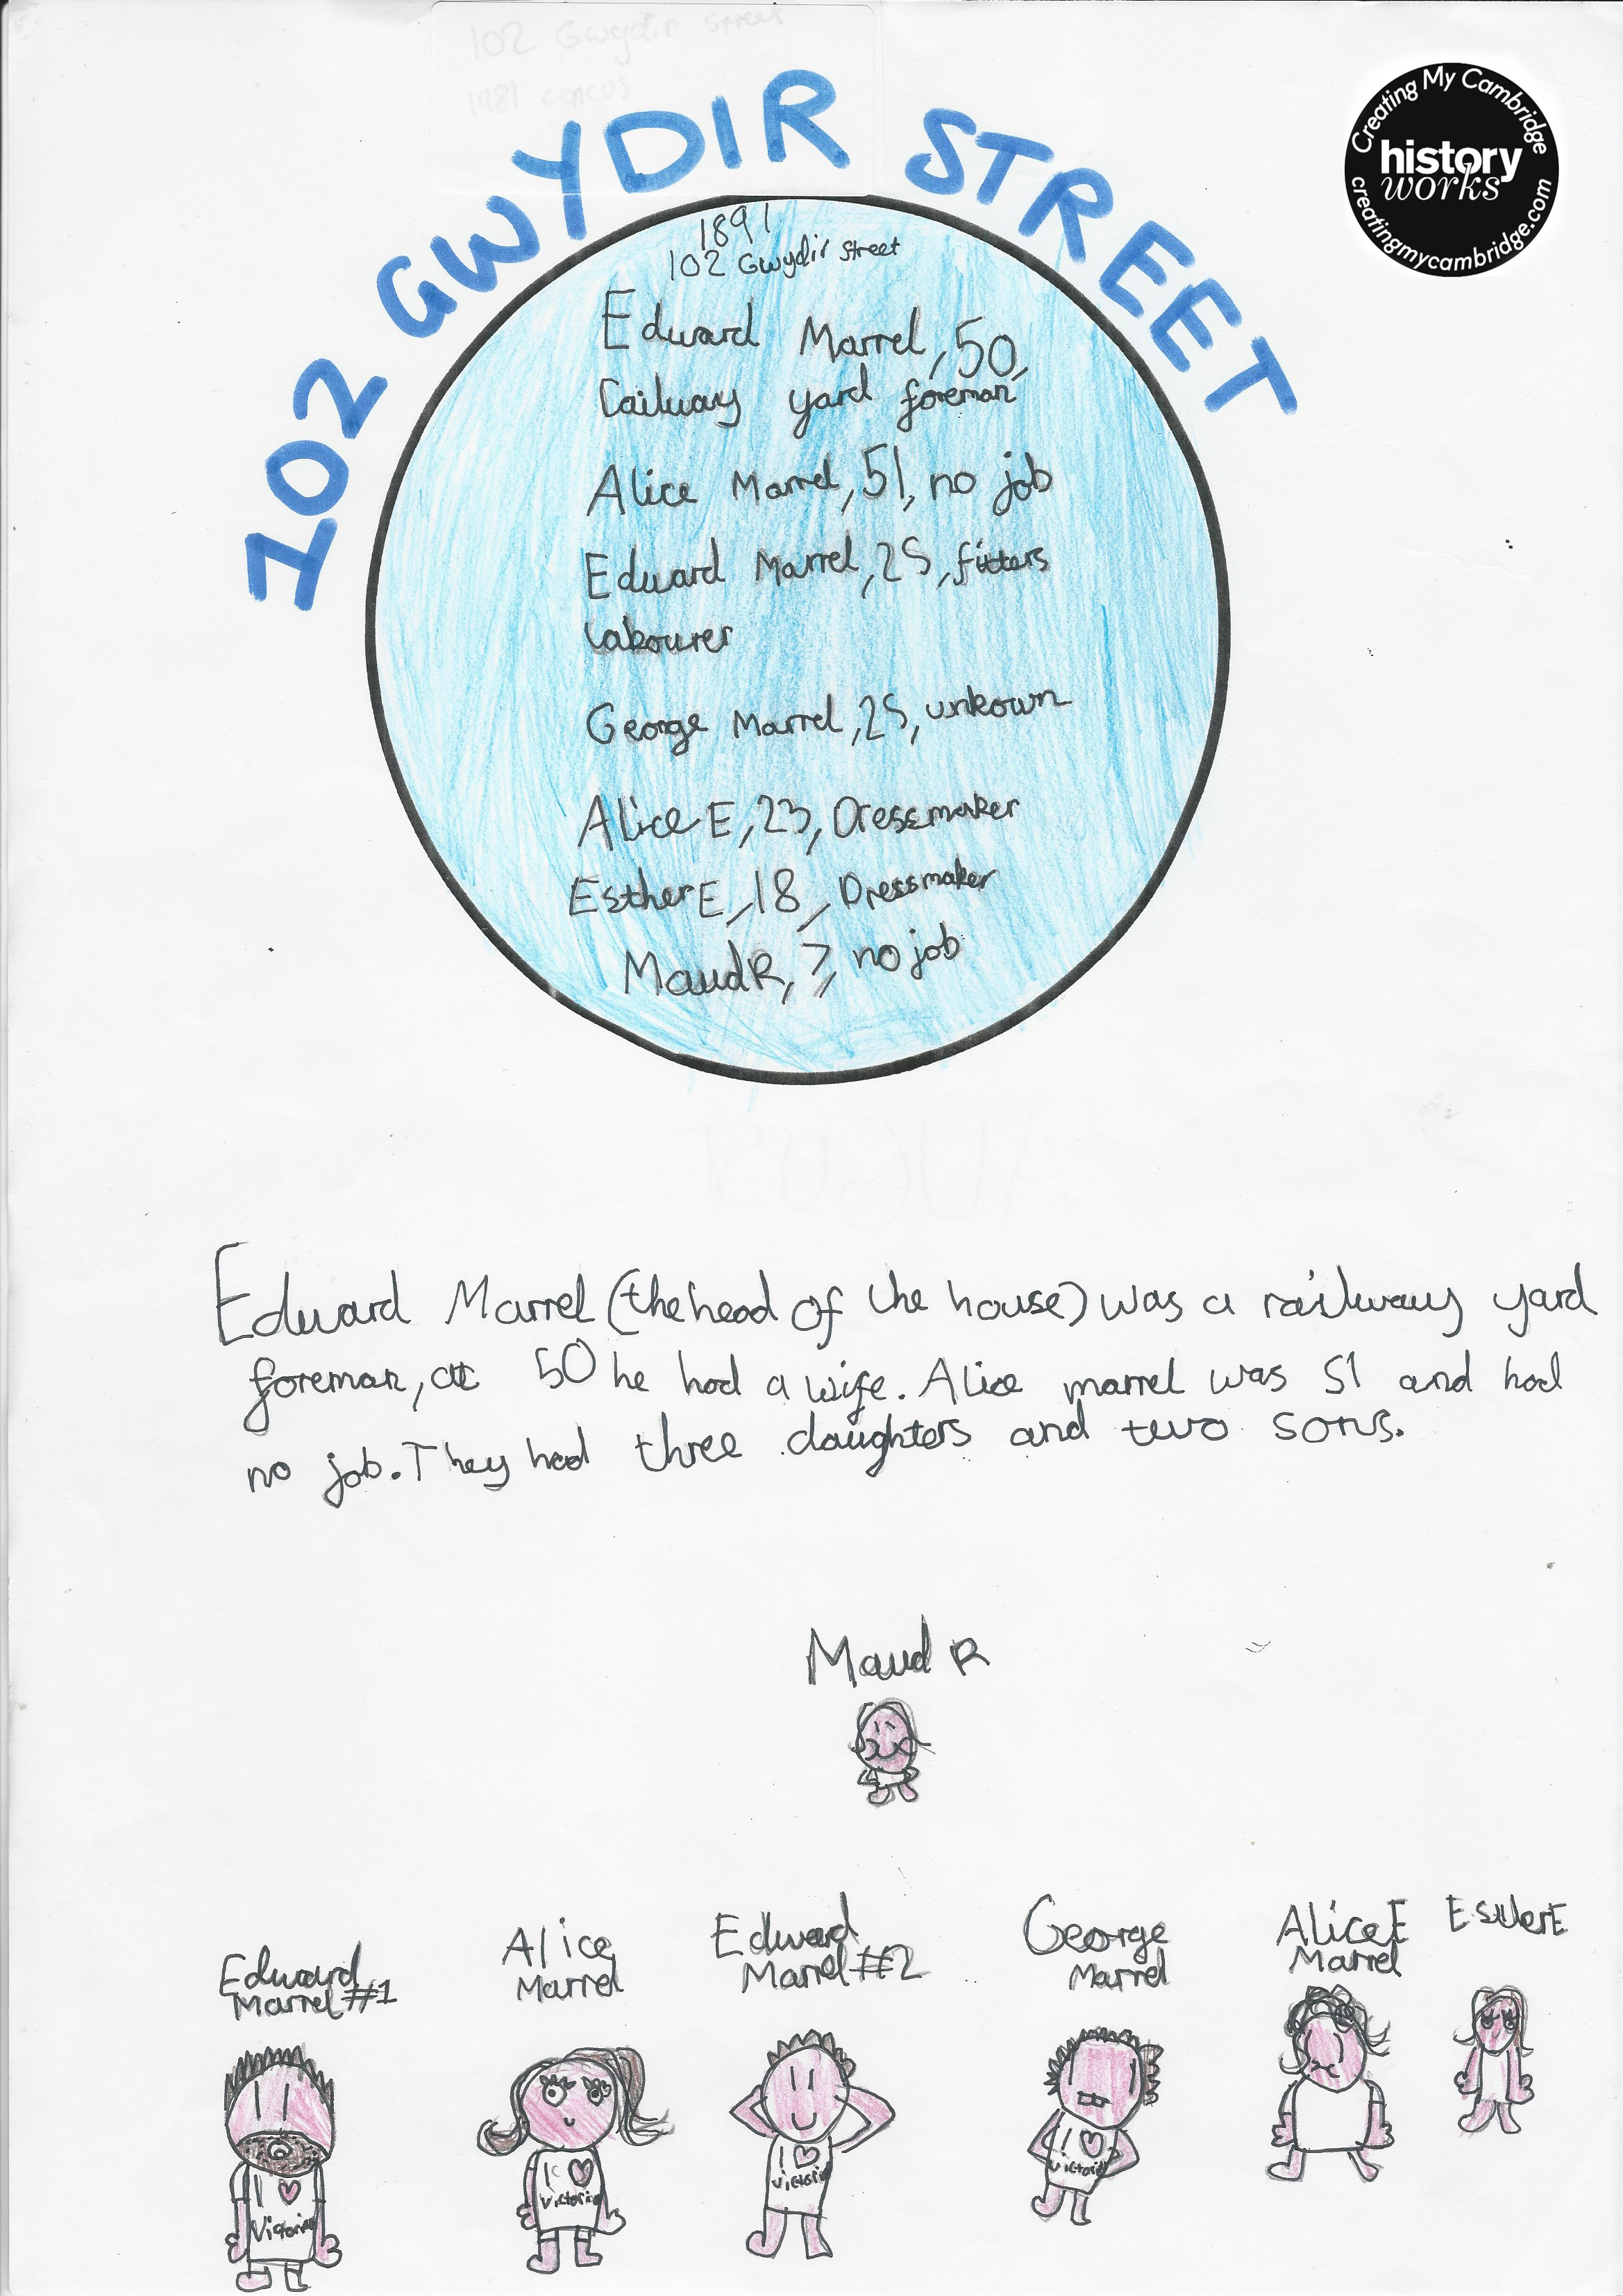 102 Gwydir street
1981 cencus
102 GWYDIR STREET
Creating My Cambridge
history
works
creatingmycambridge.com
1891
102 Gwydir street
Edward Marrel, 50,
railway yard foreman
Alice Marrel, 51, no job
Edward Marrel, 25, fitters
labourer
George Marrel, 25, unkown
Alice E, 23, Dressmaker
Esther E, 18, Dressmaker
Maud R, 7, no job
Edward Marrel (the head of the house) was a railway yard
foreman, at 50 he had a wife. Alice marrel was 51 and had
no job. They had three daughters and two sons.
Maud R
Edward
Marrel #1
Alice
Marrel
Edward
Marrel #2
George
Marrel
Alice E
Marrel
Esther E
I ♥
Victoria
I ♥
Victoria
I ♥
Victoria
I ♥
Victoria